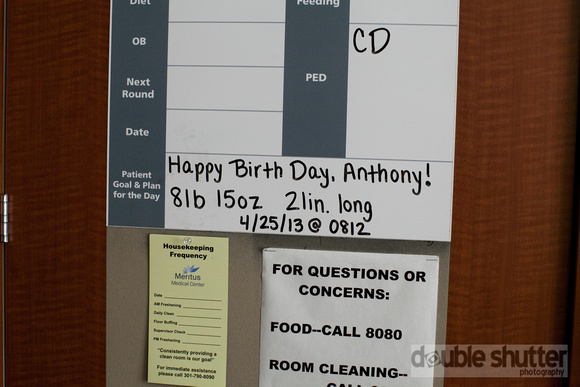 Diet
Feeding
OB
CD
PED
Next
Round
Date
Patient
Goal & Plan
for the Day
Happy Birth Day, Anthony!
8lb 15oz 21in. long
4/25/13 @ 0812
Housekeeping
Frequency
Meritus
Medical Center
Date
AM Freshening
Daily Clean
Floor Buffing
Supervisor Check
PM Freshening
"Consistently providing a
clean room is our goal"
For immediate assistance
please call 301-790-8090
FOR QUESTIONS OR
CONCERNS:
FOOD--CALL 8080
ROOM CLEANING--
double shutter
photography